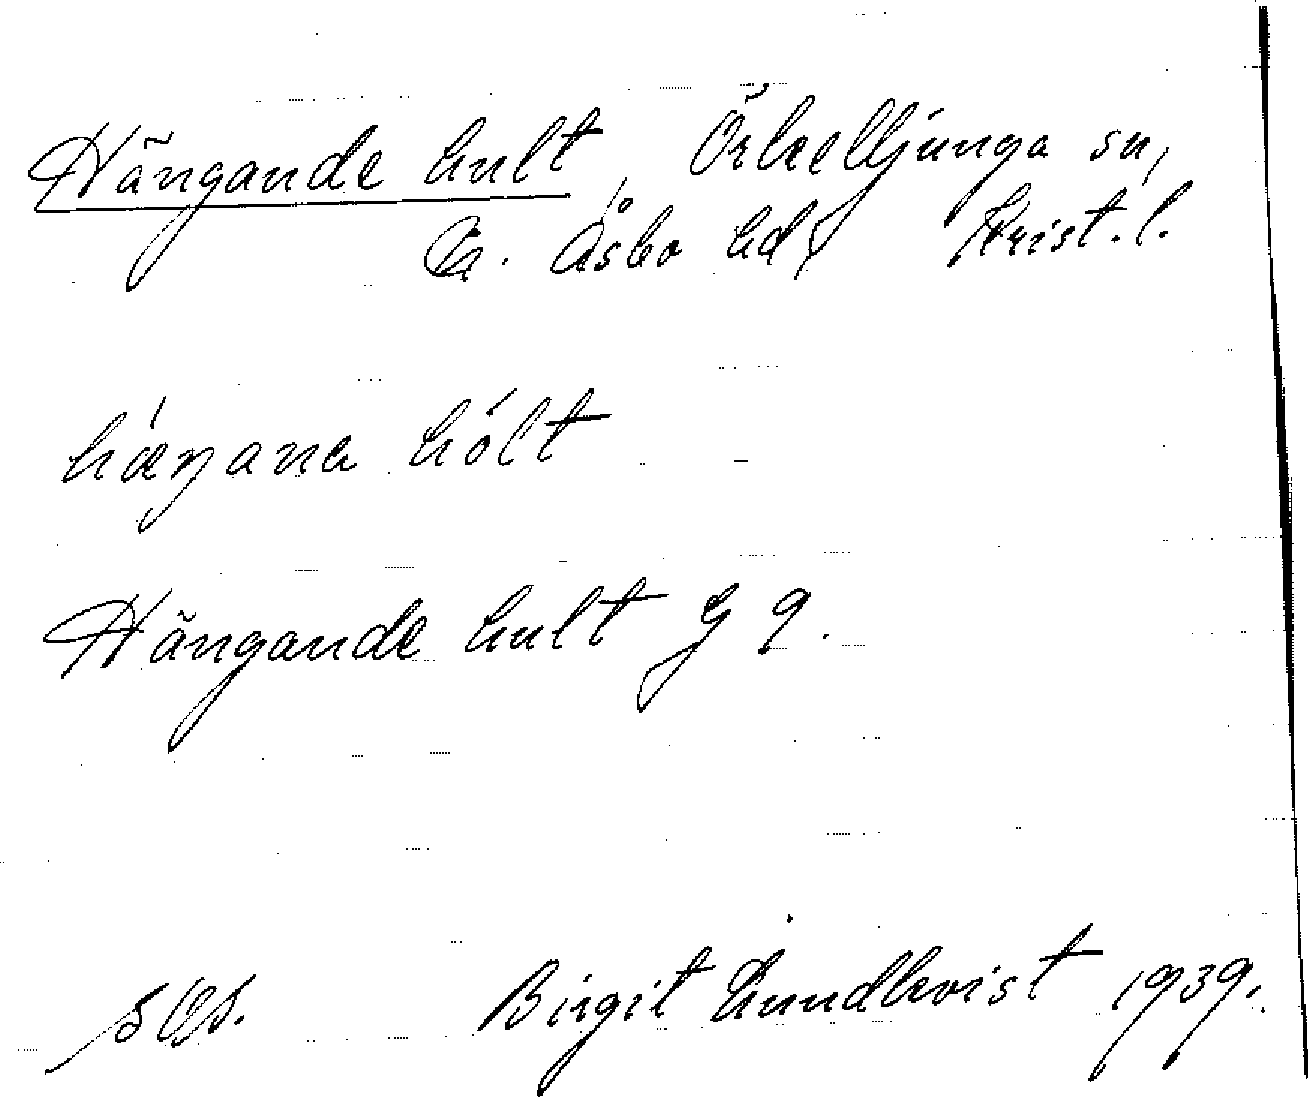 Hängande hult, Örkelljunga sn,
N. Åsbo hd, Krist. l.
hæŋana hólt
Hängande hult G 9.
Birgit Lundkvist 1939.